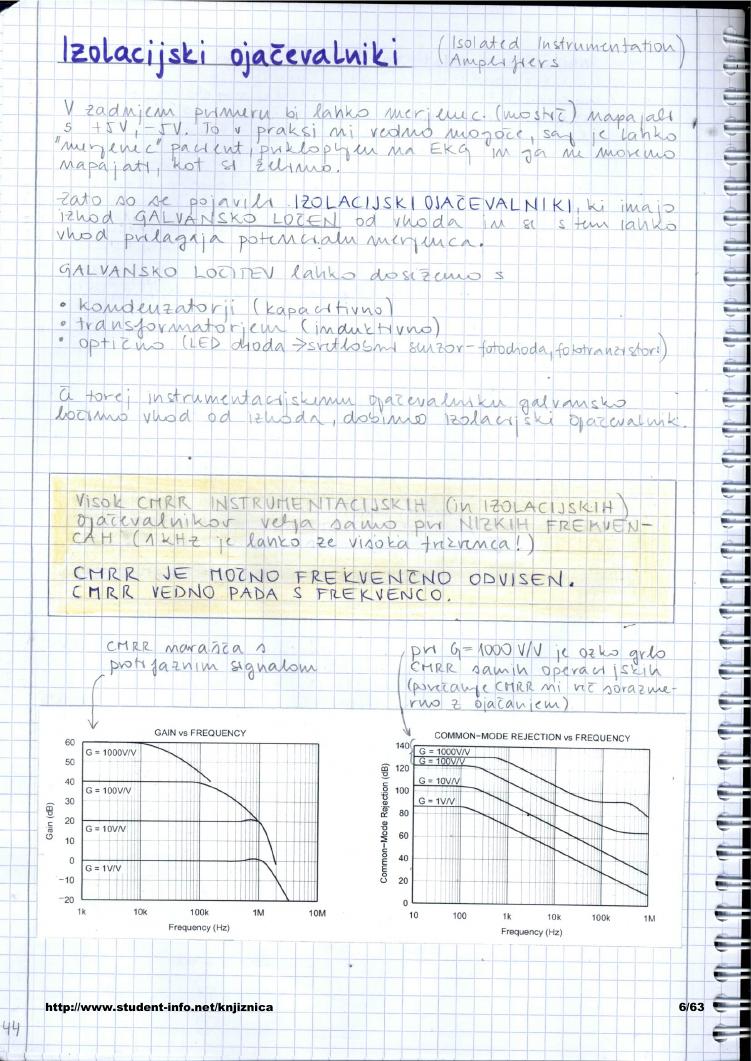 Izolacijski ojačevalniki (Isolated Instrumentation Amplifiers)
V zadnjem primeru bi lahko merjenec (mostič) napajali
s +5V, -5V. To v praksi ni vedno mogoče, saj je lahko
"merjenec" pacient, priklopljen na EKG in ga ne moremo
napajati, kot si želimo.
Zato so se pojavili IZOLACIJSKI OJAČEVALNIKI, ki imajo
izhod GALVANSKO LOČEN od vhoda in se s tem lahko
vhod prilagaja potencialu merjenca.
GALVANSKO LOČITEV lahko dosežemo s
• kondenzatorji (kapacitivno)
• transformatorjem (induktivno)
• optično (LED dioda → svetlobni senzor - fotodioda, fototranzistor)
Če torej instrumentacijskemu ojačevalniku galvansko
ločimo vhod od izhoda, dobimo izolacijski ojačevalnik.
Visok CMRR INSTRUMENTACIJSKIH (in IZOLACIJSKIH)
ojačevalnikov velja samo pri NIZKIH FREKVEN-
CAH (1kHz je lahko že visoka frekvenca!)
CMRR JE MOČNO FREKVENČNO ODVISEN.
CMRR VEDNO PADA S FREKVENCO.
CMRR narašča s
protifaznim signalom
pri G=1000 V/V je ozko grlo
CMRR samih operacijskih
(povečanje CMRR ni več sorazme-
rno z ojačanjem)
GAIN vs FREQUENCY
Gain (dB)
60
50
40
30
20
10
0
-10
-20
G = 1000V/V
G = 100V/V
G = 10V/V
G = 1V/V
1k 10k 100k 1M 10M
Frequency (Hz)
COMMON-MODE REJECTION vs FREQUENCY
Common-Mode Rejection (dB)
140
120
100
80
60
40
20
0
G = 1000V/V
G = 100V/V
G = 10V/V
G = 1V/V
10 100 1k 10k 100k 1M
Frequency (Hz)
http://www.student-info.net/knjiznica 6/63
44